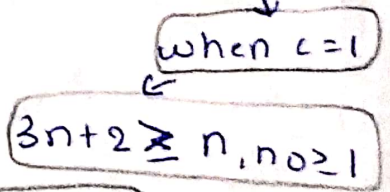 when c=1
3n+2 ≥ n, n0≥1